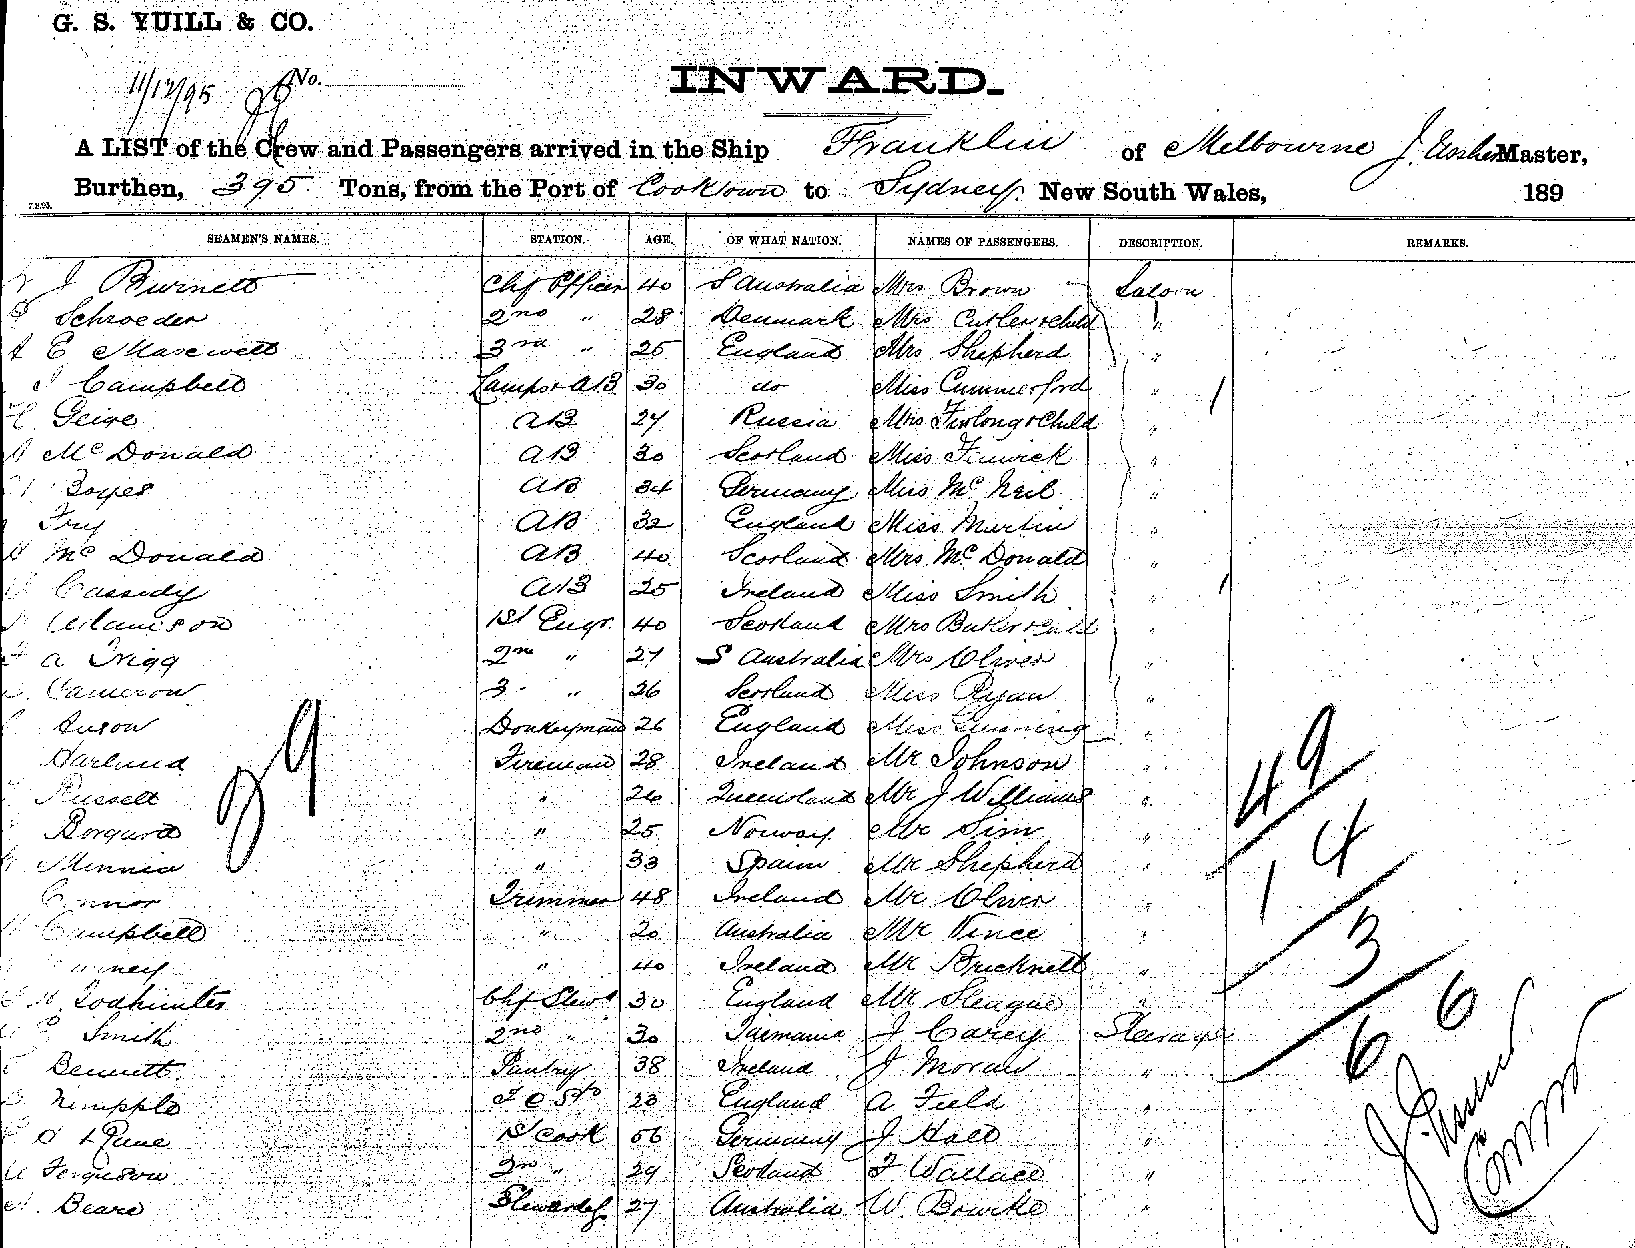 G. S. YUILL & CO.
11/12/95 No.
INWARD.
A LIST of the Crew and Passengers arrived in the Ship Franklin of Melbourne J. Master,
Burthen, 395 Tons, from the Port of Cooktown to Sydney. New South Wales, 189
SEAMEN'S NAMES. STATION. AGE. OF WHAT NATION. NAMES OF PASSENGERS. DESCRIPTION. REMARKS.
J Burnett Chf Officer 40 S Australia Mrs Brown Saloon
Schroeder 2nd " 28 Denmark Mrs Cutler & Child "
E 3rd " 25 England Mrs Shepherd "
Campbell Lamps & AB 30 do Miss Cummerford "
AB 27 Russia Mrs Furlong & Child "
McDonald AB 30 Scotland Miss Finwick "
Boyes AB 34 Germany Miss McNeil "
Fry AB 32 England Miss Martin "
McDonald AB 40 Scotland Mrs McDonald "
Cassidy AB 25 Ireland Miss Smith "
Adamson 1st Engr. 40 Scotland Mrs Butler & Child "
A Trigg 2nd " 27 S Australia Mrs Oliver "
Cameron 3 " 26 Scotland Miss Ryan "
Donkeyman 26 England Miss "
Harland Fireman 28 Ireland Mr Johnson "
Russell " 26 Queensland Mr J Williams "
" 25 Norway Mr Sim "
" 33 Spain Mr Shepherd "
Trimmer 48 Ireland Mr Oliver "
Campbell " 20 Australia Mr Vince "
" 40 Ireland Mr Bricknell "
Todhunter Chf Stewd 30 England Mr "
Smith 2nd " 30 Tasmania J Carey Steerage
Bennett Pantry 38 Ireland J Moran "
England A Field "
1st Cook 56 Germany J Hall "
Ferguson 2nd " 29 Scotland F Wallace "
Beare Stewardess 27 Australia W. Bourke "
49
14
3
66